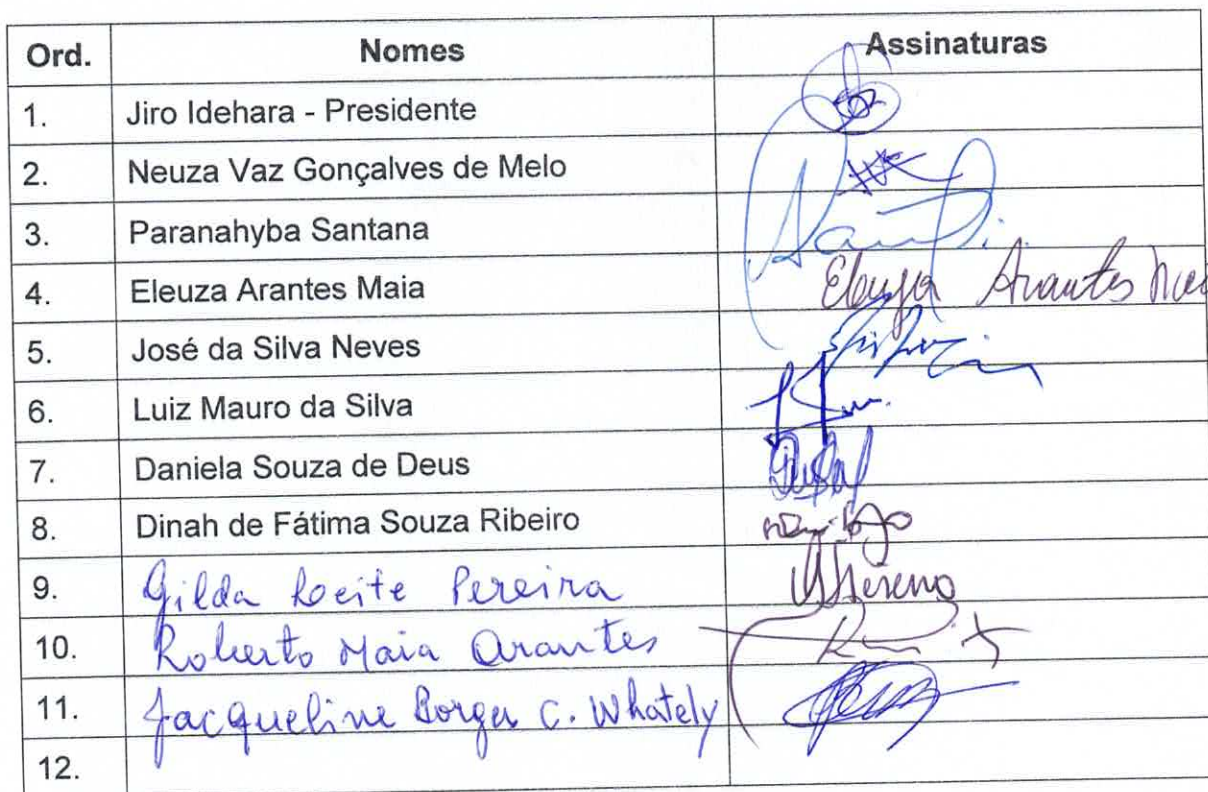 Ord. Nomes Assinaturas
1. Jiro Idehara - Presidente
2. Neuza Vaz Gonçalves de Melo
3. Paranahyba Santana
4. Eleuza Arantes Maia Eleuza Arantes
5. José da Silva Neves
6. Luiz Mauro da Silva
7. Daniela Souza de Deus
8. Dinah de Fátima Souza Ribeiro
9. Gilda Leite Pereira
10. Roberto Maia Arantes
11. Jacqueline Borges C. Whately
12.